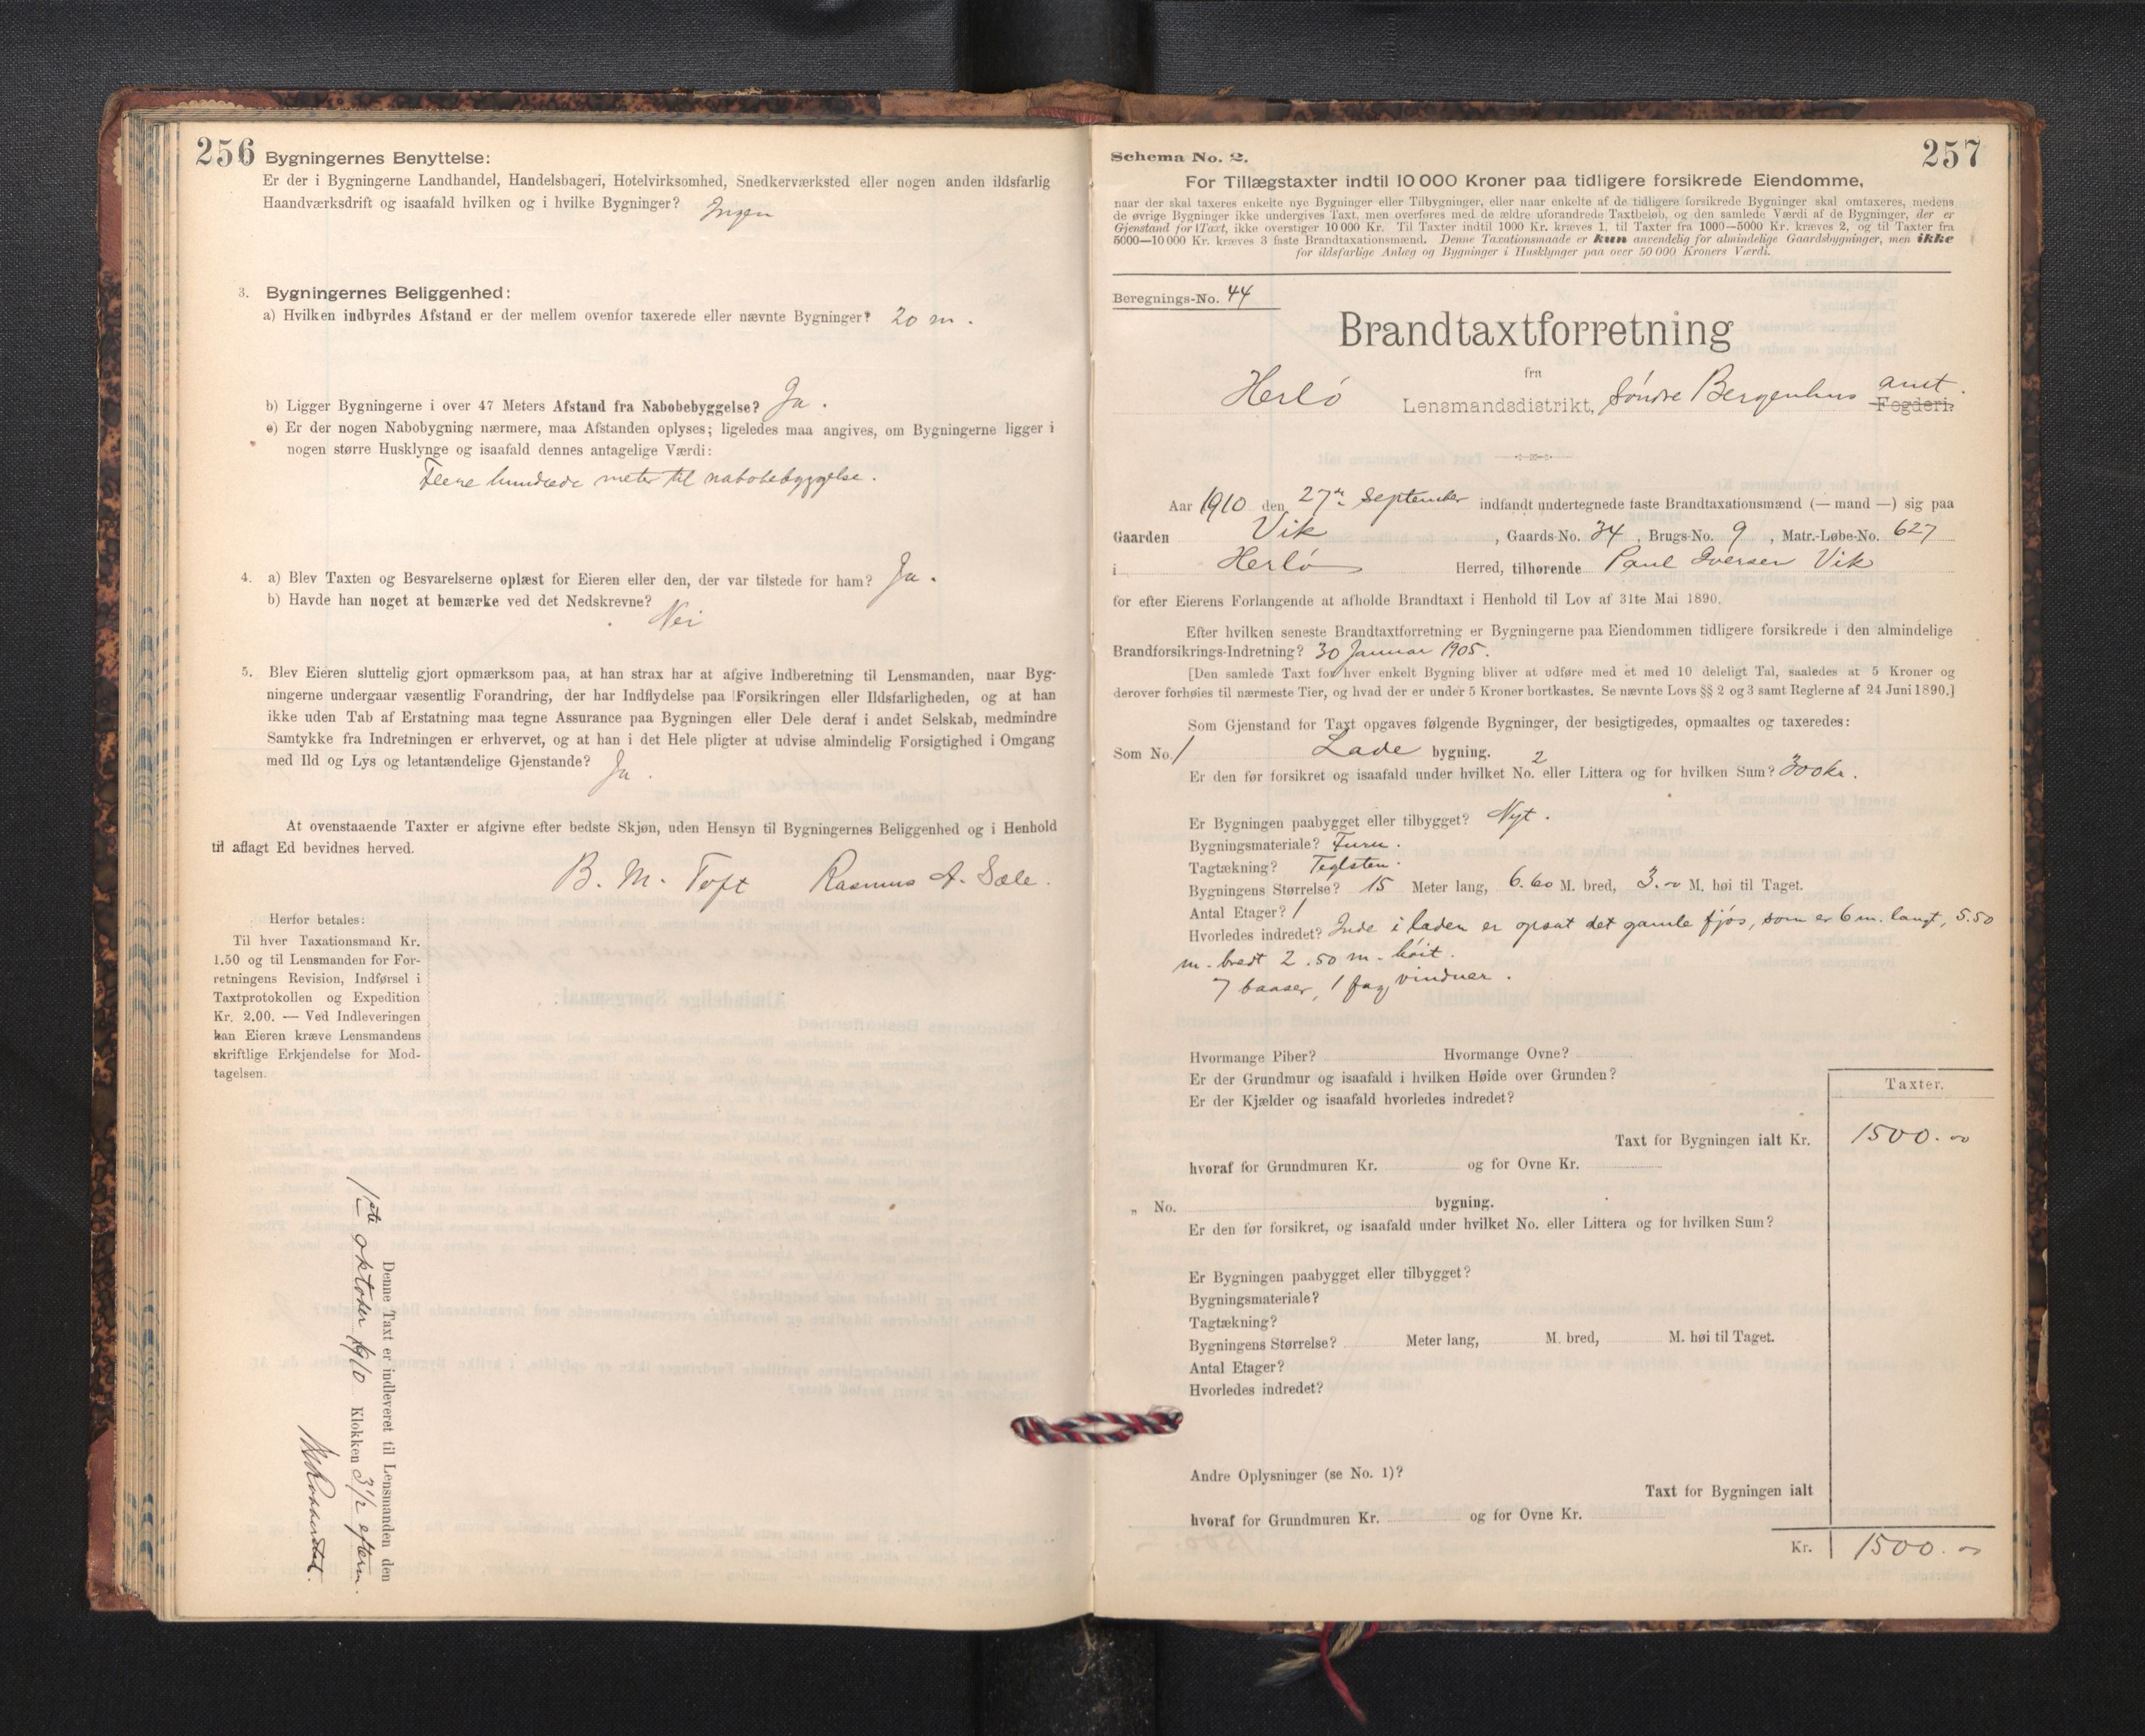 256
Bygningernes Benyttelse:
Er der i Bygningerne Landhandel, Handelsbageri, Hotelvirksomhed, Snedkerværksted eller nogen anden ildsfarlig
Haandværksdrift og isaafald hvilken og i hvilke Bygninger? Ingen
3. Bygningernes Beliggenhed:
a) Hvilken indbyrdes Afstand er der mellem ovenfor taxerede eller nævnte Bygninger? 20 m.
b) Ligger Bygningerne i over 47 Meters Afstand fra Nabobebyggelse? Ja.
c) Er der nogen Nabobygning nærmere, maa Afstanden oplyses; ligeledes maa angives, om Bygningerne ligger i
nogen større Husklynge og isaafald dennes antagelige Værdi:
Flere hundrede meter til nabobebyggelse.
4. a) Blev Taxten og Besvarelserne oplæst for Eieren eller den, der var tilstede for ham? Ja.
b) Havde han noget at bemærke ved det Nedskrevne?
Nei
5. Blev Eieren sluttelig gjort opmærksom paa, at han strax har at afgive Indberetning til Lensmanden, naar Byg-
ningerne undergaar væsentlig Forandring, der har Indflydelse paa Forsikringen eller Ildsfarligheden, og at han
ikke uden Tab af Erstatning maa tegne Assurance paa Bygningen eller Dele deraf i andet Selskab, medmindre
Samtykke fra Indretningen er erhvervet, og at han i det Hele pligter at udvise almindelig Forsigtighed i Omgang
med Ild og Lys og letantændelige Gjenstande? Ja.
At ovenstaaende Taxter er afgivne efter bedste Skjøn, uden Hensyn til Bygningernes Beliggenhed og i Henhold
til aflagt Ed bevidnes herved.
B. M. Toft Rasmus A. Sæle.
Herfor betales:
Til hver Taxationsmand Kr.
1.50 og til Lensmanden for For-
retningens Revision, Indførsel i
Taxtprotokollen og Expedition
Kr. 2.00. — Ved Indleveringen
kan Eieren kræve Lensmandens
skriftlige Erkjendelse for Mod-
tagelsen.
Denne Taxt er indleveret til Lensmanden den
1ste oktober 1910 Klokken 3 1/2 efterm.
257
Schema No. 2.
For Tillægstaxter indtil 10 000 Kroner paa tidligere forsikrede Eiendomme,
naar der skal taxeres enkelte nye Bygninger eller Tilbygninger, eller naar enkelte af de tidligere forsikrede Bygninger skal omtaxeres, medens
de øvrige Bygninger ikke undergives Taxt, men overføres med de ældre uforandrede Taxtbeløb, og den samlede Værdi af de Bygninger, der er
Gjenstand for Taxt, ikke overstiger 10 000 Kr. Til Taxter indtil 1000 Kr. kræves 1, til Taxter fra 1000—5000 Kr. kræves 2, og til Taxter fra
5000—10 000 Kr. kræves 3 faste Brandtaxationsmænd. Denne Taxationsmaade er kun anvendelig for almindelige Gaardsbygninger, men ikke
for ildsfarlige Anlæg og Bygninger i Husklynger paa over 50 000 Kroners Værdi.
Beregnings-No. 44
Brandtaxtforretning
fra
Herlö Lensmandsdistrikt, Søndre Bergenhus amt. Fogderi.
Aar 1910 den 27de September indfandt undertegnede faste Brandtaxationsmænd (— mand —) sig paa
Gaarden Vik, Gaards-No. 34, Brugs-No. 9, Matr.-Løbe-No. 627
i Herlö Herred, tilhørende Paul Iversen Vik
for efter Eierens Forlangende at afholde Brandtaxt i Henhold til Lov af 31te Mai 1890.
Efter hvilken seneste Brandtaxtforretning er Bygningerne paa Eiendommen tidligere forsikrede i den almindelige
Brandforsikrings-Indretning? 30 Januar 1905.
[Den samlede Taxt for hver enkelt Bygning bliver at udføre med et med 10 deleligt Tal, saaledes at 5 Kroner og
derover forhøies til nærmeste Tier, og hvad der er under 5 Kroner bortkastes. Se nævnte Lovs §§ 2 og 3 samt Reglerne af 24 Juni 1890.]
Som Gjenstand for Taxt opgaves følgende Bygninger, der besigtigedes, opmaaltes og taxeredes:
Som No. 1 Lade bygning.
Er den før forsikret og isaafald under hvilket No. 2 eller Littera og for hvilken Sum? 300 kr.
Er Bygningen paabygget eller tilbygget? Nyt.
Bygningsmateriale? Furu.
Tagtækning? Teglsten.
Bygningens Størrelse? 15 Meter lang, 6.60 M. bred, 3.00 M. høi til Taget.
Antal Etager? 1
Hvorledes indredet? Inde i laden er opsat det gamle fjøs, som er 6 m. langt, 5.50
m. bredt 2.50 m. höit.
7 baaser, 1 fag vinduer.
Hvormange Piber? Hvormange Ovne?
Er der Grundmur og isaafald i hvilken Høide over Grunden?
Er der Kjælder og isaafald hvorledes indredet?
Taxter.
Taxt for Bygningen ialt Kr. 1500.00
hvoraf for Grundmuren Kr. og for Ovne Kr.
„ No. bygning.
Er den før forsikret, og isaafald under hvilket No. eller Littera og for hvilken Sum?
Er Bygningen paabygget eller tilbygget?
Bygningsmateriale?
Tagtækning?
Bygningens Størrelse? Meter lang, M. bred, M. høi til Taget.
Antal Etager?
Hvorledes indredet?
Andre Oplysninger (se No. 1)?
Taxt for Bygningen ialt
hvoraf for Grundmuren Kr. og for Ovne Kr.
Kr. 1500.00